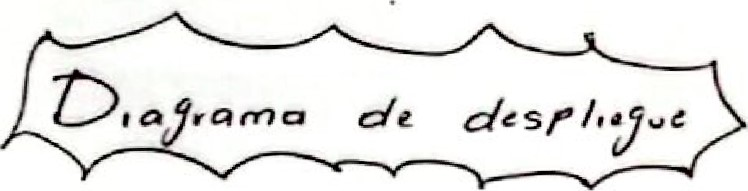 Diagrama de despliegue